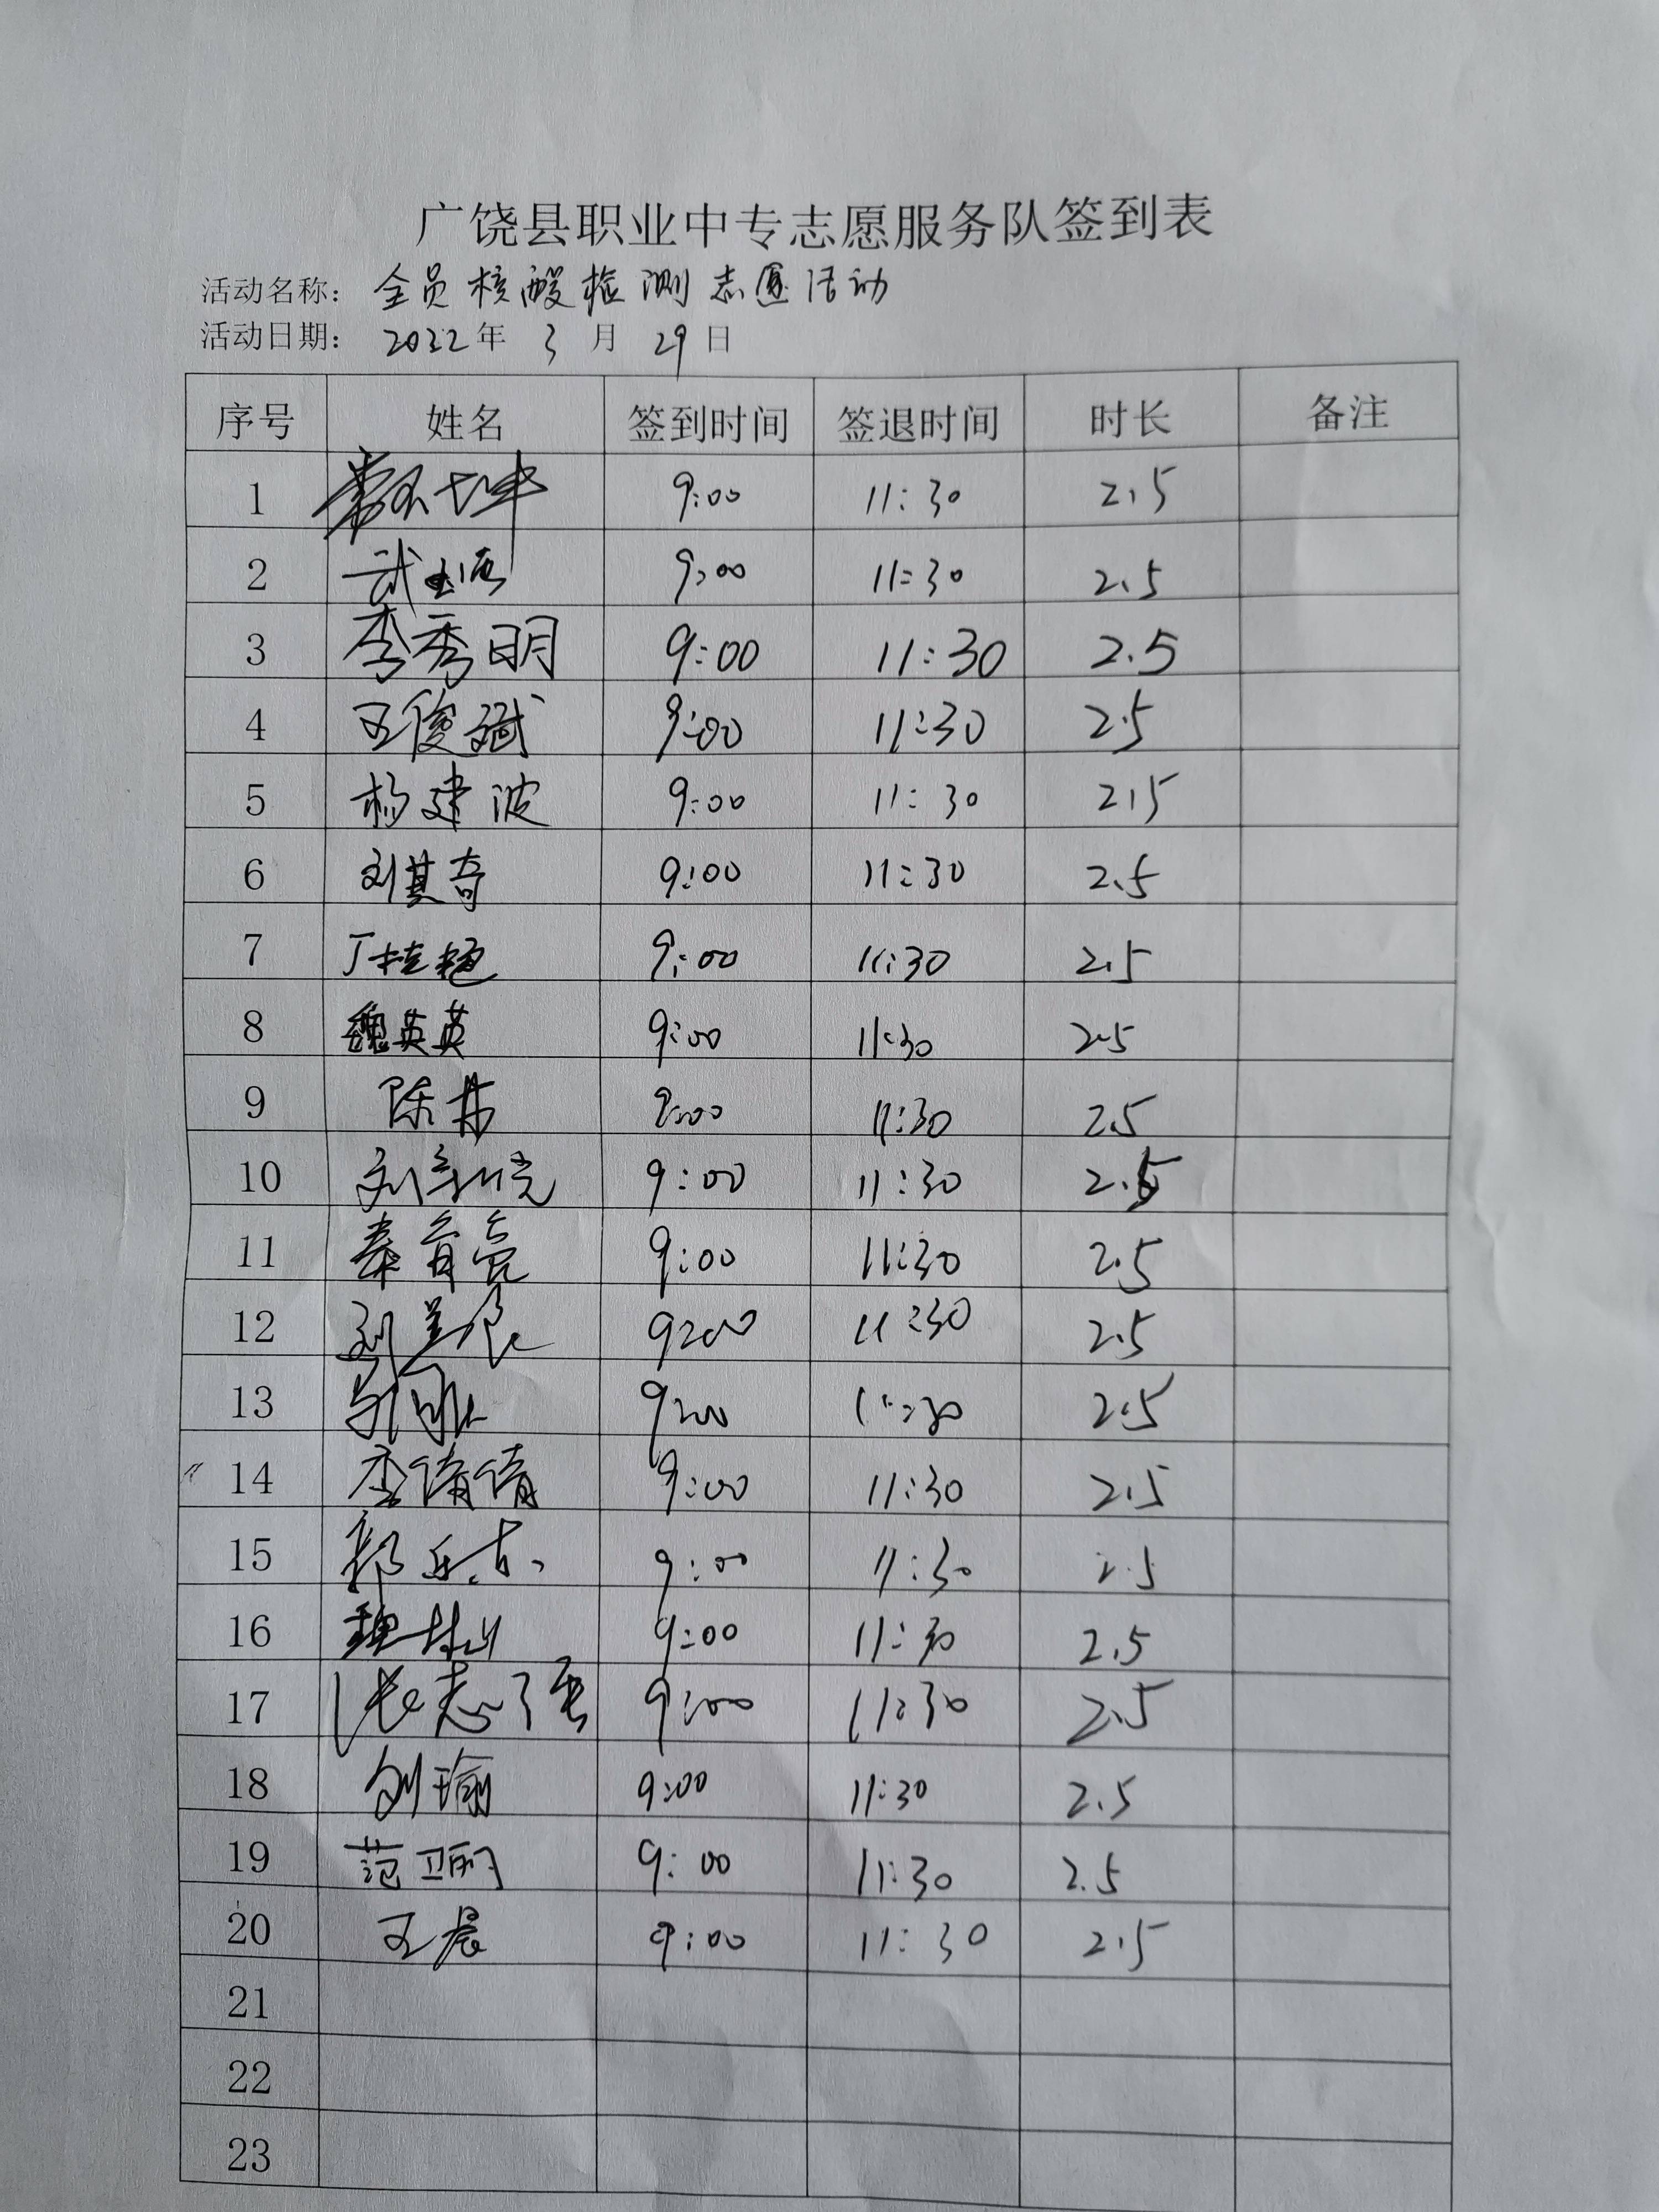 广饶县职业中专志愿服务队签到表
活动名称: 全员核酸检测志愿活动
活动日期: 2022年 3月 29日
序号 姓名 签到时间 签退时间 时长 备注
1 9:00 11:30 2.5
2 9:00 11:30 2.5
3 李秀明 9:00 11:30 2.5
4 王俊斌 9:00 11:30 2.5
5 杨建波 9:00 11:30 2.5
6 刘其奇 9:00 11:30 2.5
7 丁桂艳 9:00 11:30 2.5
8 魏英英 9:00 11:30 2.5
9 9:00 11:30 2.5
10 9:00 11:30 2.5
11 9:00 11:30 2.5
12 9:00 11:30 2.5
13 9:00 11:30 2.5
14 李倩倩 9:00 11:30 2.5
15 9:00 11:30 2.5
16 9:00 11:30 2.5
17 张志强 9:00 11:30 2.5
18 刘瑜 9:00 11:30 2.5
19 范卫丽 9:00 11:30 2.5
20 王晨 9:00 11:30 2.5
21
22
23